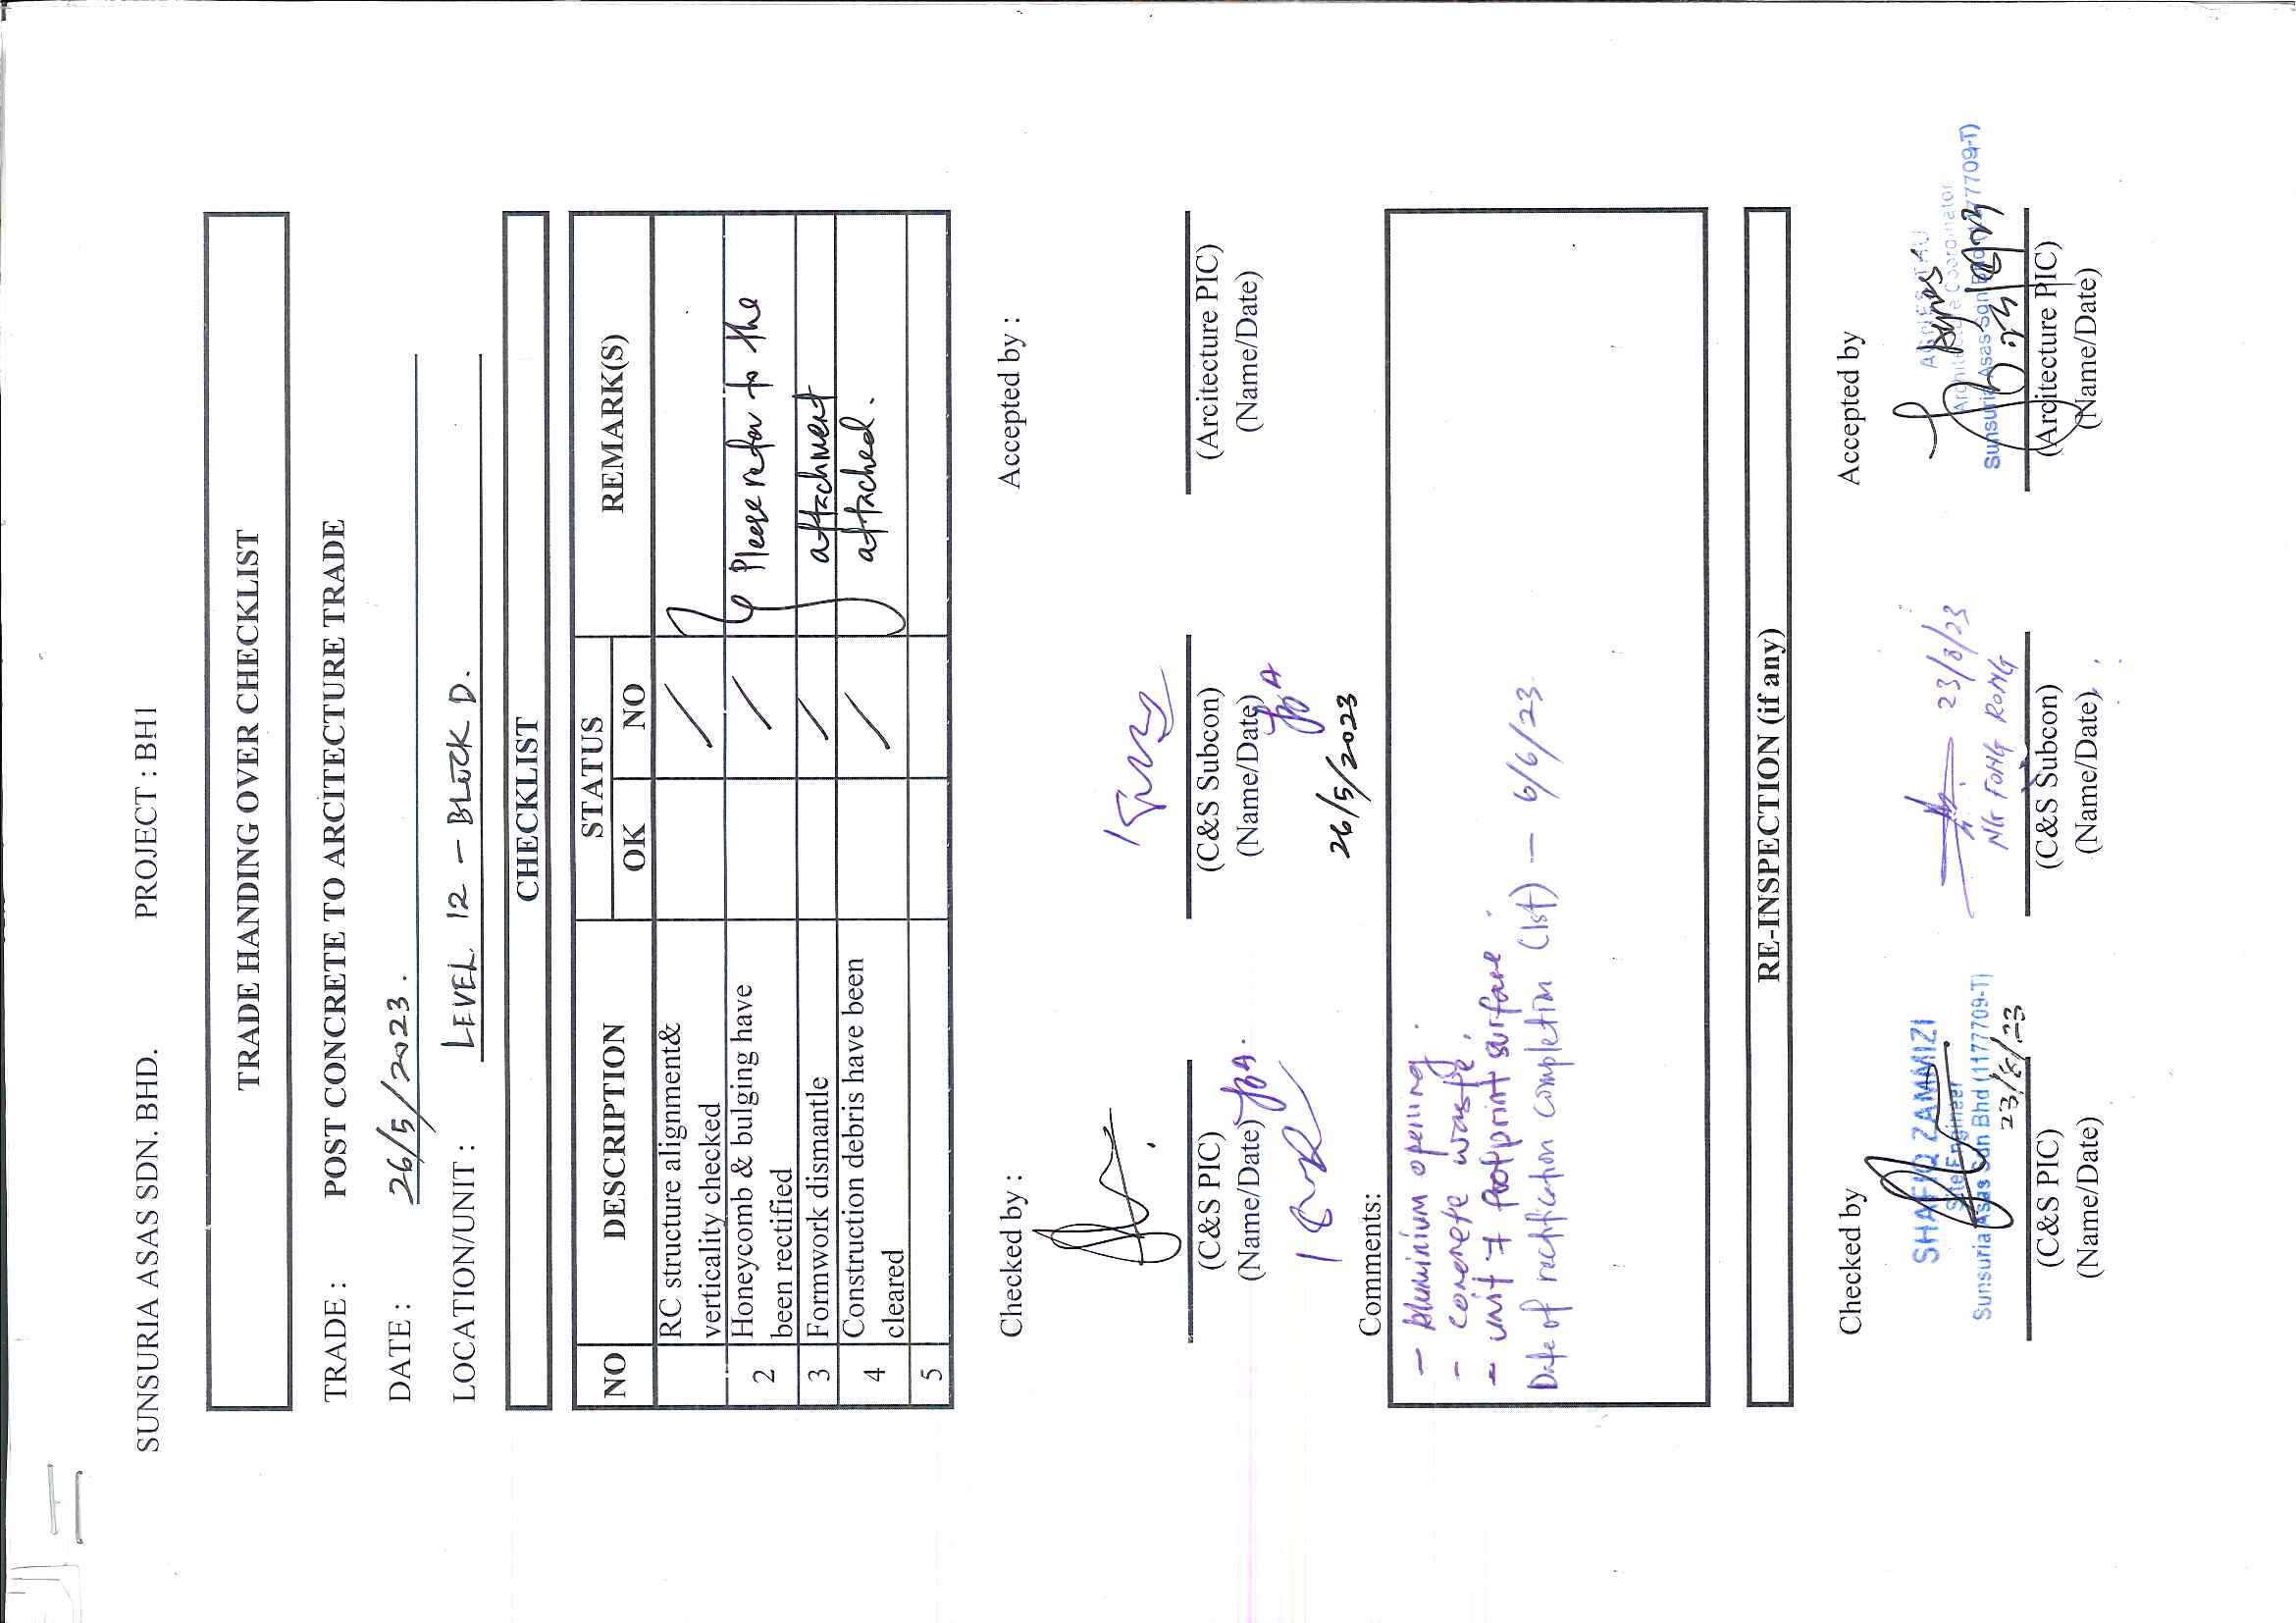 SUNSURIA ASAS SDN. BHD. PROJECT : BH1
TRADE HANDING OVER CHECKLIST
TRADE : POST CONCRETE TO ARCITECTURE TRADE
DATE : 26/5/2023.
LOCATION/UNIT : LEVEL 12 - BLOCK D.
CHECKLIST
NO DESCRIPTION STATUS REMARK(S)
OK NO
RC structure alignment& /
verticality checked
2 Honeycomb & bulging have / Please refer to the
been rectified
3 Formwork dismantle / attachment
4 Construction debris have been / attached.
cleared
5
Checked by : Accepted by :
(C&S PIC) (C&S Subcon) (Arcitecture PIC)
(Name/Date) (Name/Date) (Name/Date)
26/5/2023
Comments:
- Aluminium opening.
- concrete waste.
- unit 7 footprint surface.
Date of rectification completion (1st) - 6/6/23.
RE-INSPECTION (if any)
Checked by Accepted by
SHAFIQ ZAMMIZI
Site Engineer
Sunsuria Asas Sdn Bhd (1177709-T)
23/8/23
23/8/23
NG FONG RONG
AGNES TAU
Architecture Coordinator
Sunsuria Asas Sdn Bhd (1177709-T)
Agnes
(C&S PIC) (C&S Subcon) (Arcitecture PIC)
(Name/Date) (Name/Date) (Name/Date)